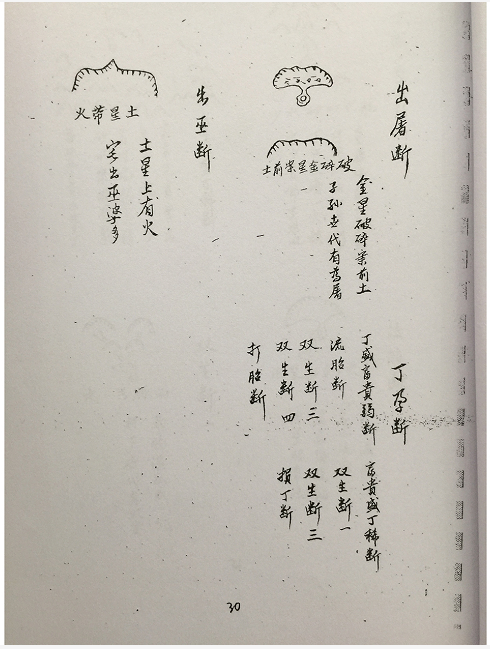 出屠断
金星破碎案前土
子孙世代有为屠
破碎金星案前土
出巫断
土星带火
土星上有火
定出巫婆多
丁孕断
丁盛富贵弱断
富贵盛丁稀断
流胎断
双生断一
双生断三
双生断三
双生断四
损丁断
打胎断
30